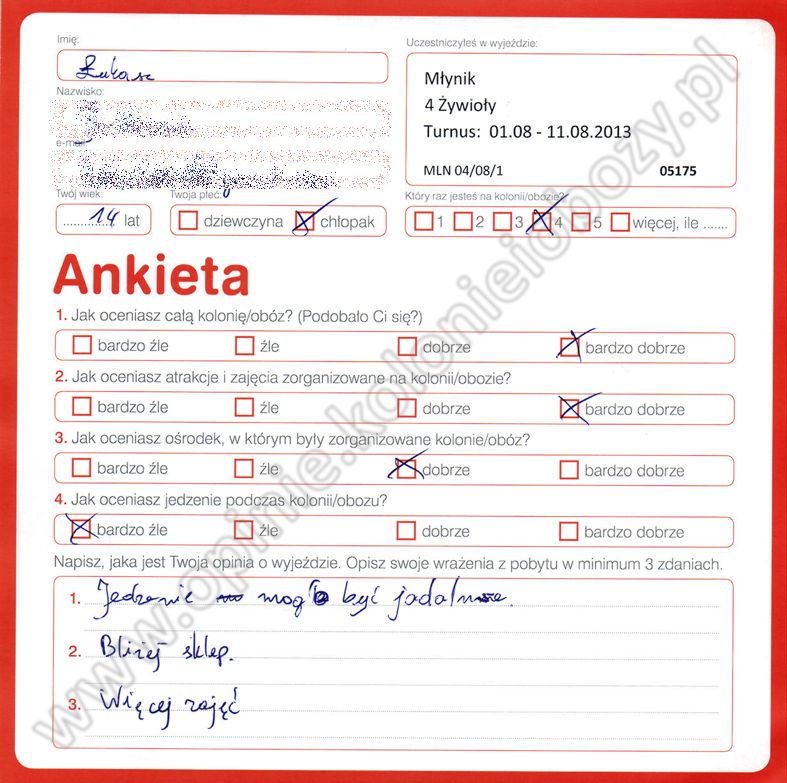 Imię:
Łukasz
Uczestniczyłeś w wyjeździe:
Młynik
4 Żywioły
Turnus: 01.08 - 11.08.2013
MLN 04/08/1 05175
Nazwisko:
e-mail:
Twój wiek:
14 lat
Twoja płeć:
dziewczyna chłopak
Który raz jesteś na kolonii/obozie?
1 2 3 4 5 więcej, ile .......
Ankieta
1. Jak oceniasz całą kolonię/obóz? (Podobało Ci się?)
bardzo źle źle dobrze bardzo dobrze
2. Jak oceniasz atrakcje i zajęcia zorganizowane na kolonii/obozie?
bardzo źle źle dobrze bardzo dobrze
3. Jak oceniasz ośrodek, w którym były zorganizowane kolonie/obóz?
bardzo źle źle dobrze bardzo dobrze
4. Jak oceniasz jedzenie podczas kolonii/obozu?
bardzo źle źle dobrze bardzo dobrze
Napisz, jaka jest Twoja opinia o wyjeździe. Opisz swoje wrażenia z pobytu w minimum 3 zdaniach.
1. Jedzenie być
2. Bliżej sklep.
3. Więcej zajęć
www.opinie.kolonieiobozy.pl